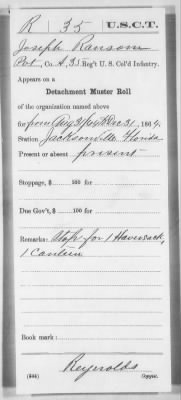 R 35 U.S.C.T.
Joseph Ransom
Pvt, Co. A, 35 Reg't U. S. Col'd Infantry.
Appears on a
Detachment Muster Roll
of the organization named above
for from Aug 31/64 to Dec 31, 1864.
Station Jacksonville Florida
Present or absent present
Stoppage, $ 100 for
Due Gov't, $ 100 for
Remarks: Stop for 1 Haversack,
1 Canteen
Book mark:
Reynolds
Copyist.